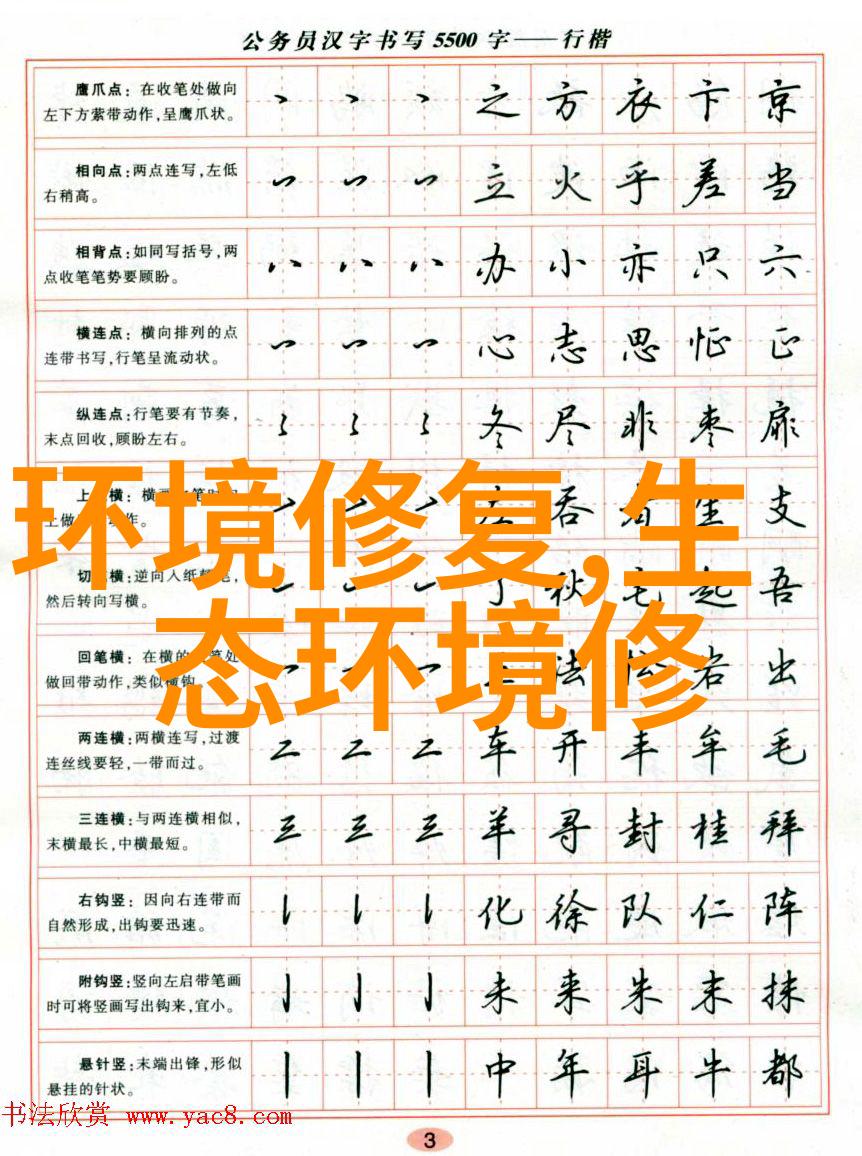 公务员汉字书写5500字——行楷
鹰爪点：在收笔处做向
左下方萦带动作，呈鹰爪状。
之 方 衣 卞 京
相向点：两点连写，左低
右稍高。
立 火 乎 差 当
相背点：如同写括号，两
点收笔笔势要顾盼。
办 小 亦 只 六
横连点：横向排列的点
连带书写，行笔呈流动状。
心 志 思 怔 正
纵连点：行笔要有节奏，
末点回收，顾盼左右。
冬 尽 非 枣 扉
环境修复,生
态环境修
横：横
吞 生 支
切 横：逆向入纸
然后转向写横。
秋 毛 起 吾
回笔横：在横的 笔处
做回带动作，类似横钩。
法 松 岩 出
两连横：两横连写，过渡
连丝线要轻，一带而过。
二 二 二 车 开 丰 牟 毛
三连横：与两连横相似，
末横最长，中横最短。
三 三 三 羊 寻 封 桂 拜
右钩竖：因向右连带而
自然形成，出钩要迅速。
化 徐 队 仁 阵
附钩竖：竖向左启带笔画
时可将竖画写出钩来，宜小。
未 来 朱 末 抹
悬针竖：末端出锋，形似
悬挂的针状。
中 年 耳 牛 都
书法欣赏 www.yac8.com
3